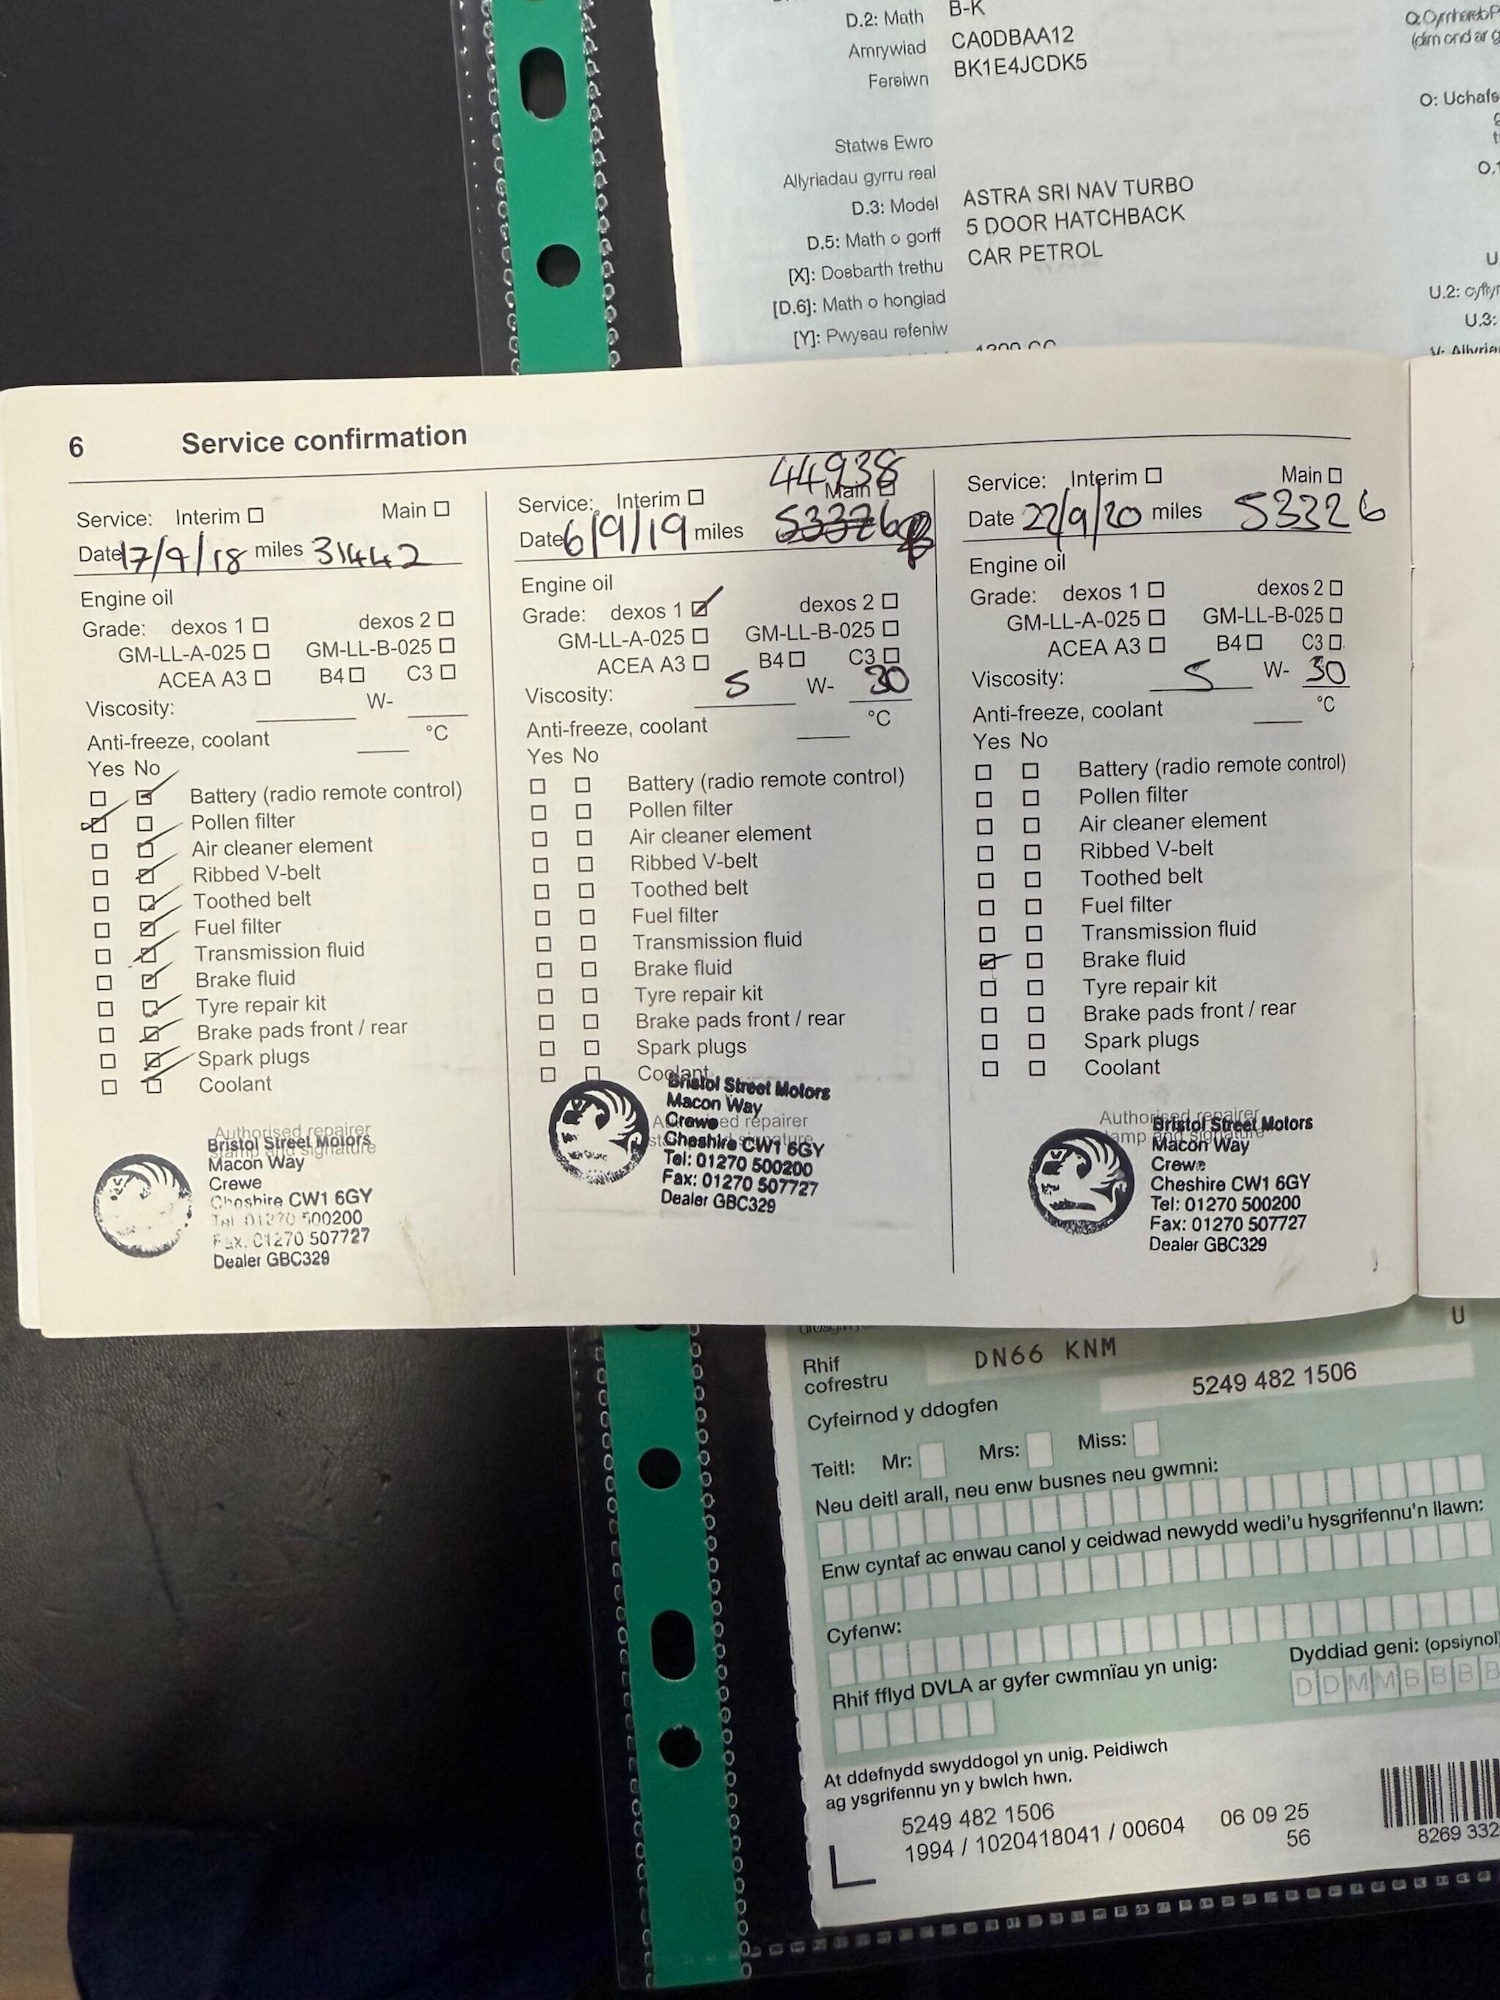 D.2: Math B-K
Amrywiad CA0DBAA12
Fersiwn BK1E4JCDK5
O: Uchafs
Statws Ewro
Allyriadau gyrru real
D.3: Model ASTRA SRI NAV TURBO
D.5: Math o gorff 5 DOOR HATCHBACK
[X]: Dosbarth trethu CAR PETROL
[D.6]: Math o hongiad
[Y]: Pwysau refeniw
U.2: cyflyr
U.3:
6 Service confirmation
Service: Interim Main
Date 17/9/18 miles 31442
Engine oil
Grade: dexos 1 dexos 2
GM-LL-A-025 GM-LL-B-025
ACEA A3 B4 C3
Viscosity: W-
Anti-freeze, coolant °C
Yes No
Battery (radio remote control)
Pollen filter
Air cleaner element
Ribbed V-belt
Toothed belt
Fuel filter
Transmission fluid
Brake fluid
Tyre repair kit
Brake pads front / rear
Spark plugs
Coolant
Authorised repairer
stamp and signature
Bristol Street Motors
Macon Way
Crewe
Cheshire CW1 6GY
Tel: 01270 500200
Fax: 01270 507727
Dealer GBC329
44938
Service: Interim Main
Date 6/9/19 miles 53326
Engine oil
Grade: dexos 1 dexos 2
GM-LL-A-025 GM-LL-B-025
ACEA A3 B4 C3
Viscosity: 5 W- 30
Anti-freeze, coolant °C
Yes No
Battery (radio remote control)
Pollen filter
Air cleaner element
Ribbed V-belt
Toothed belt
Fuel filter
Transmission fluid
Brake fluid
Tyre repair kit
Brake pads front / rear
Spark plugs
Coolant
Authorised repairer
stamp and signature
Bristol Street Motors
Macon Way
Crewe
Cheshire CW1 6GY
Tel: 01270 500200
Fax: 01270 507727
Dealer GBC329
Service: Interim Main
Date 22/9/20 miles 53326
Engine oil
Grade: dexos 1 dexos 2
GM-LL-A-025 GM-LL-B-025
ACEA A3 B4 C3
Viscosity: 5 W- 30
Anti-freeze, coolant °C
Yes No
Battery (radio remote control)
Pollen filter
Air cleaner element
Ribbed V-belt
Toothed belt
Fuel filter
Transmission fluid
Brake fluid
Tyre repair kit
Brake pads front / rear
Spark plugs
Coolant
Authorised repairer
stamp and signature
Bristol Street Motors
Macon Way
Crewe
Cheshire CW1 6GY
Tel: 01270 500200
Fax: 01270 507727
Dealer GBC329
U
Rhif
cofrestru DN66 KNM
Cyfeirnod y ddogfen 5249 482 1506
Teitl: Mr: Mrs: Miss:
Neu deitl arall, neu enw busnes neu gwmni:
Enw cyntaf ac enwau canol y ceidwad newydd wedi'u hysgrifennu'n llawn:
Cyfenw:
Rhif fflyd DVLA ar gyfer cwmnïau yn unig:
Dyddiad geni: (opsiynol)
D D M M B B B B
At ddefnydd swyddogol yn unig. Peidiwch
ag ysgrifennu yn y bwlch hwn.
5249 482 1506
1994 / 1020418041 / 00604 06 09 25
56
8269 332